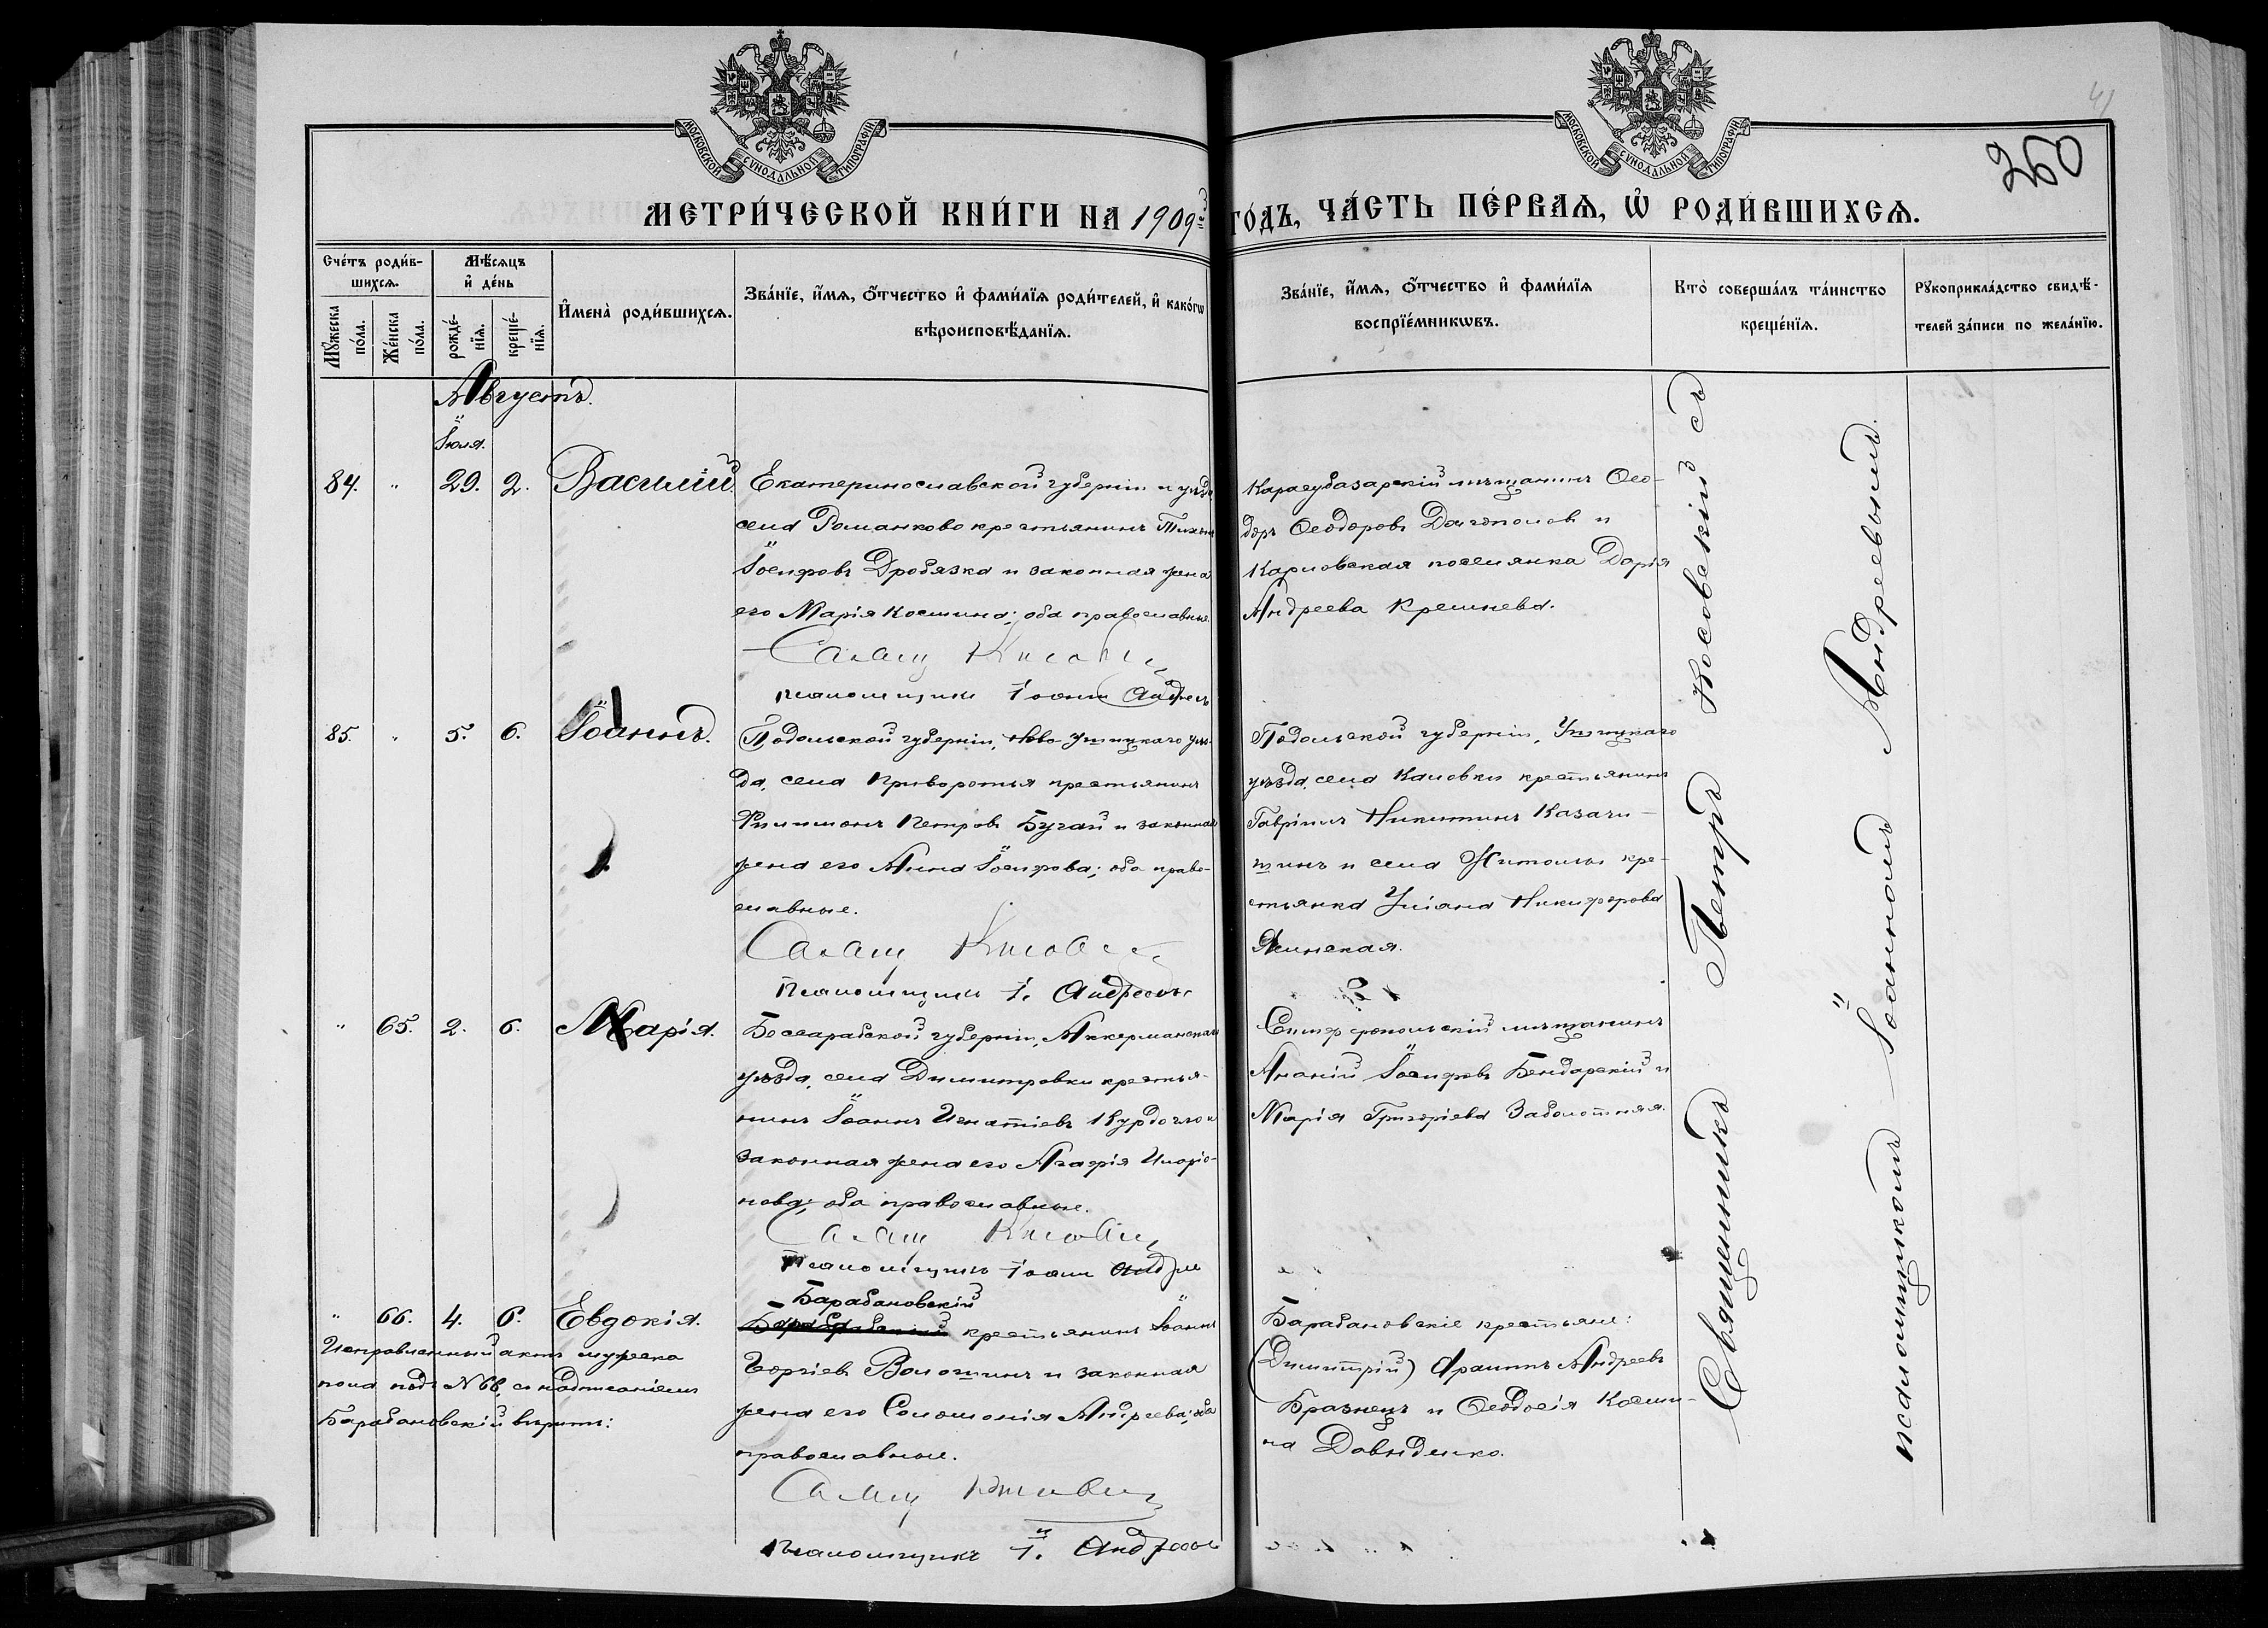 МОСКОВСКОЙ СѴНОДАЛЬНОЙ ТИПОГРАФІИ.
МОСКОВСКОЙ СѴНОДАЛЬНОЙ ТИПОГРАФІИ.
41
260
МЕТРИ́ЧЕСКОЙ КНИ́ГИ НА 1909й ГО́ДЪ, ЧА́СТЬ ПЕ́РВАѦ, Ѡ҆ РОДИ́ВШИХСѦ.
Сче́тъ роди́в-
шихсѧ.
Мꙋ́жеска по́ла.
Же́нска по́ла.
Мѣ́сѧцъ и҆ де́нь
рожде́-нїѧ.
креще́-нїѧ.
И҆мена̀ роди́вшихсѧ.
Зва́нїе, и҆́мѧ, ѻ҆́тчество и҆ фами́лїѧ роди́телей, и҆ како́гѡ
вѣроисповѣ́данїѧ.
Зва́нїе, и҆́мѧ, ѻ҆́тчество и҆ фами́лїѧ
воспрїе́мникѡвъ.
Кто̀ соверша́лъ та́инство
креще́нїѧ.
Рꙋкоприкла́дство свидѣ́-
телей за́писи по жела́нїю.
Августъ.
Іюля.
84. " 29. 2. Василій.
Екатеринославской губерніи и уѣзда
села Романково крестьянинъ Тихонъ
Іосифовъ Дробязка и законная жена
его Марія Космина; оба православные.
Псаломщикъ Іоаннъ Андреевъ
Карасубазарскій мѣщанинъ Ѳео-
доръ Ѳеодоровъ Долгополовъ и
Карловская поселянка Дарія
Андреева Кремнева.
85. " 5. 6. Іоаннъ.
Подольской губерніи, Ново-Ушицкаго уѣз-
да, села Приворотья крестьянинъ
Филимонъ Петровъ Бугай и законная
жена его Анна Іосифова; оба право-
славные.
Псаломщикъ І. Андреевъ
Подольской губерніи, Ушицкаго
уѣзда, села Каловки крестьянинъ
Гавріилъ Никитинъ Казачи-
шинъ и села Житомы кре-
стьянка Уліана Никифорова
Ясинская.
" 65. 2. 6. Марія.
Бессарабской губерніи, Аккерманскаго
уѣзда, села Димитровки крестья-
нинъ Іоаннъ Игнатіевъ Курдогло и
законная жена его Агафія Иларіо-
нова; оба православные.
Псаломщикъ Іоаннъ Андрее
Симферопольскій мѣщанинъ
Ананій Іосифовъ Бендарскій и
Марія Григоріева Заболотняя.
" 66. 4. 6. Евдокія.
Барабановскій
крестьянинъ Іоаннъ
Георгіевъ Волошинъ и законная
жена его Соломонія Андреева; оба
православные.
Псаломщикъ І. Андреевъ
Барабановскіе крестьяне:
(Димитрій) Филиппъ Андреевъ
Бразнецъ и Ѳеодосія Косми-
на Давиденко.
Исправленный актъ мужеска
пола подъ № 68, съ надписаніемъ
Барабановскій вѣрить:
Священникъ Петръ Косовскій съ
псаломщикомъ Іоанномъ Андреевымъ.